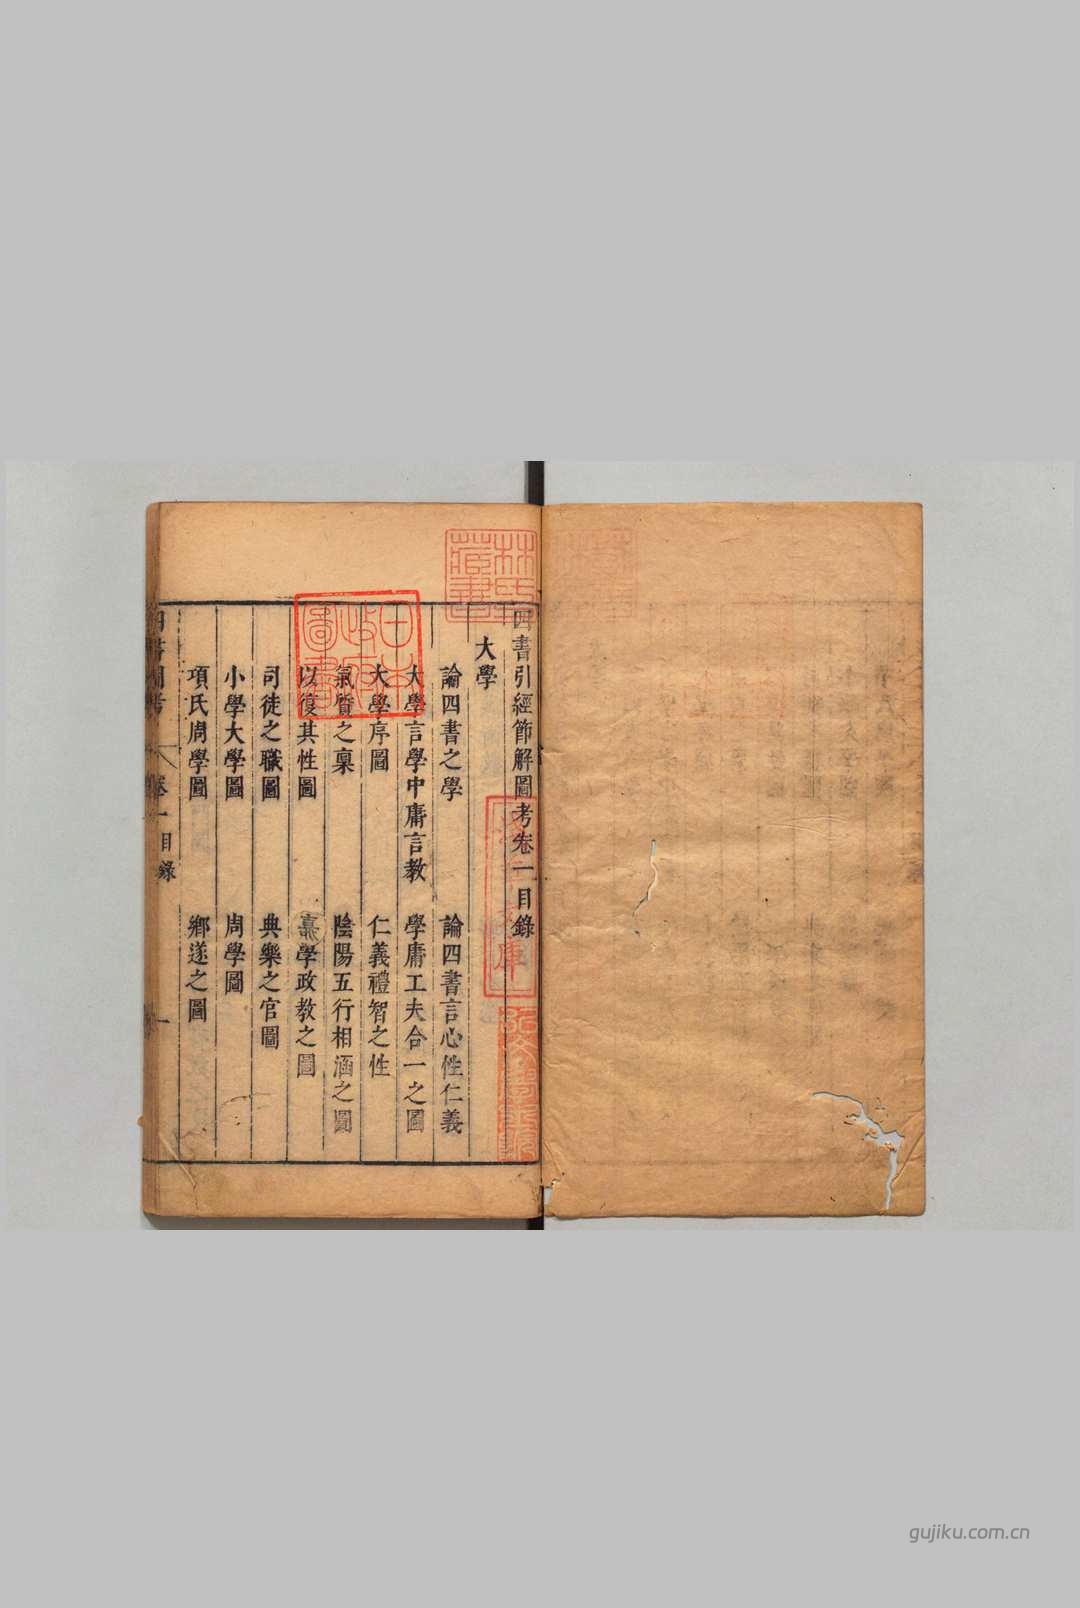 四書引經節解圖考卷一目錄
大學
論四書之學
論四書言心性仁義
大學言學中庸言教
學庸工夫合一之圖
大學序圖
仁義禮智之性
氣質之稟
陰陽五行相涵之圖
以復其性圖
學政教之圖
司徒之職圖
典樂之官圖
小學大學圖
周學圖
項氏周學圖
鄉遂之圖
卷一目錄
一
林氏藏書
日本政府圖書
gujiku.com.cn